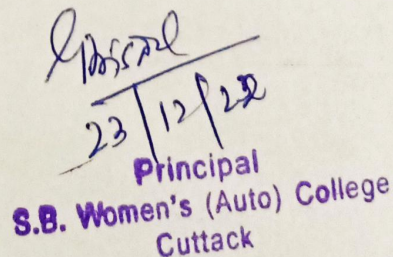 23/12/22
Principal
S.B. Women's (Auto) College
Cuttack